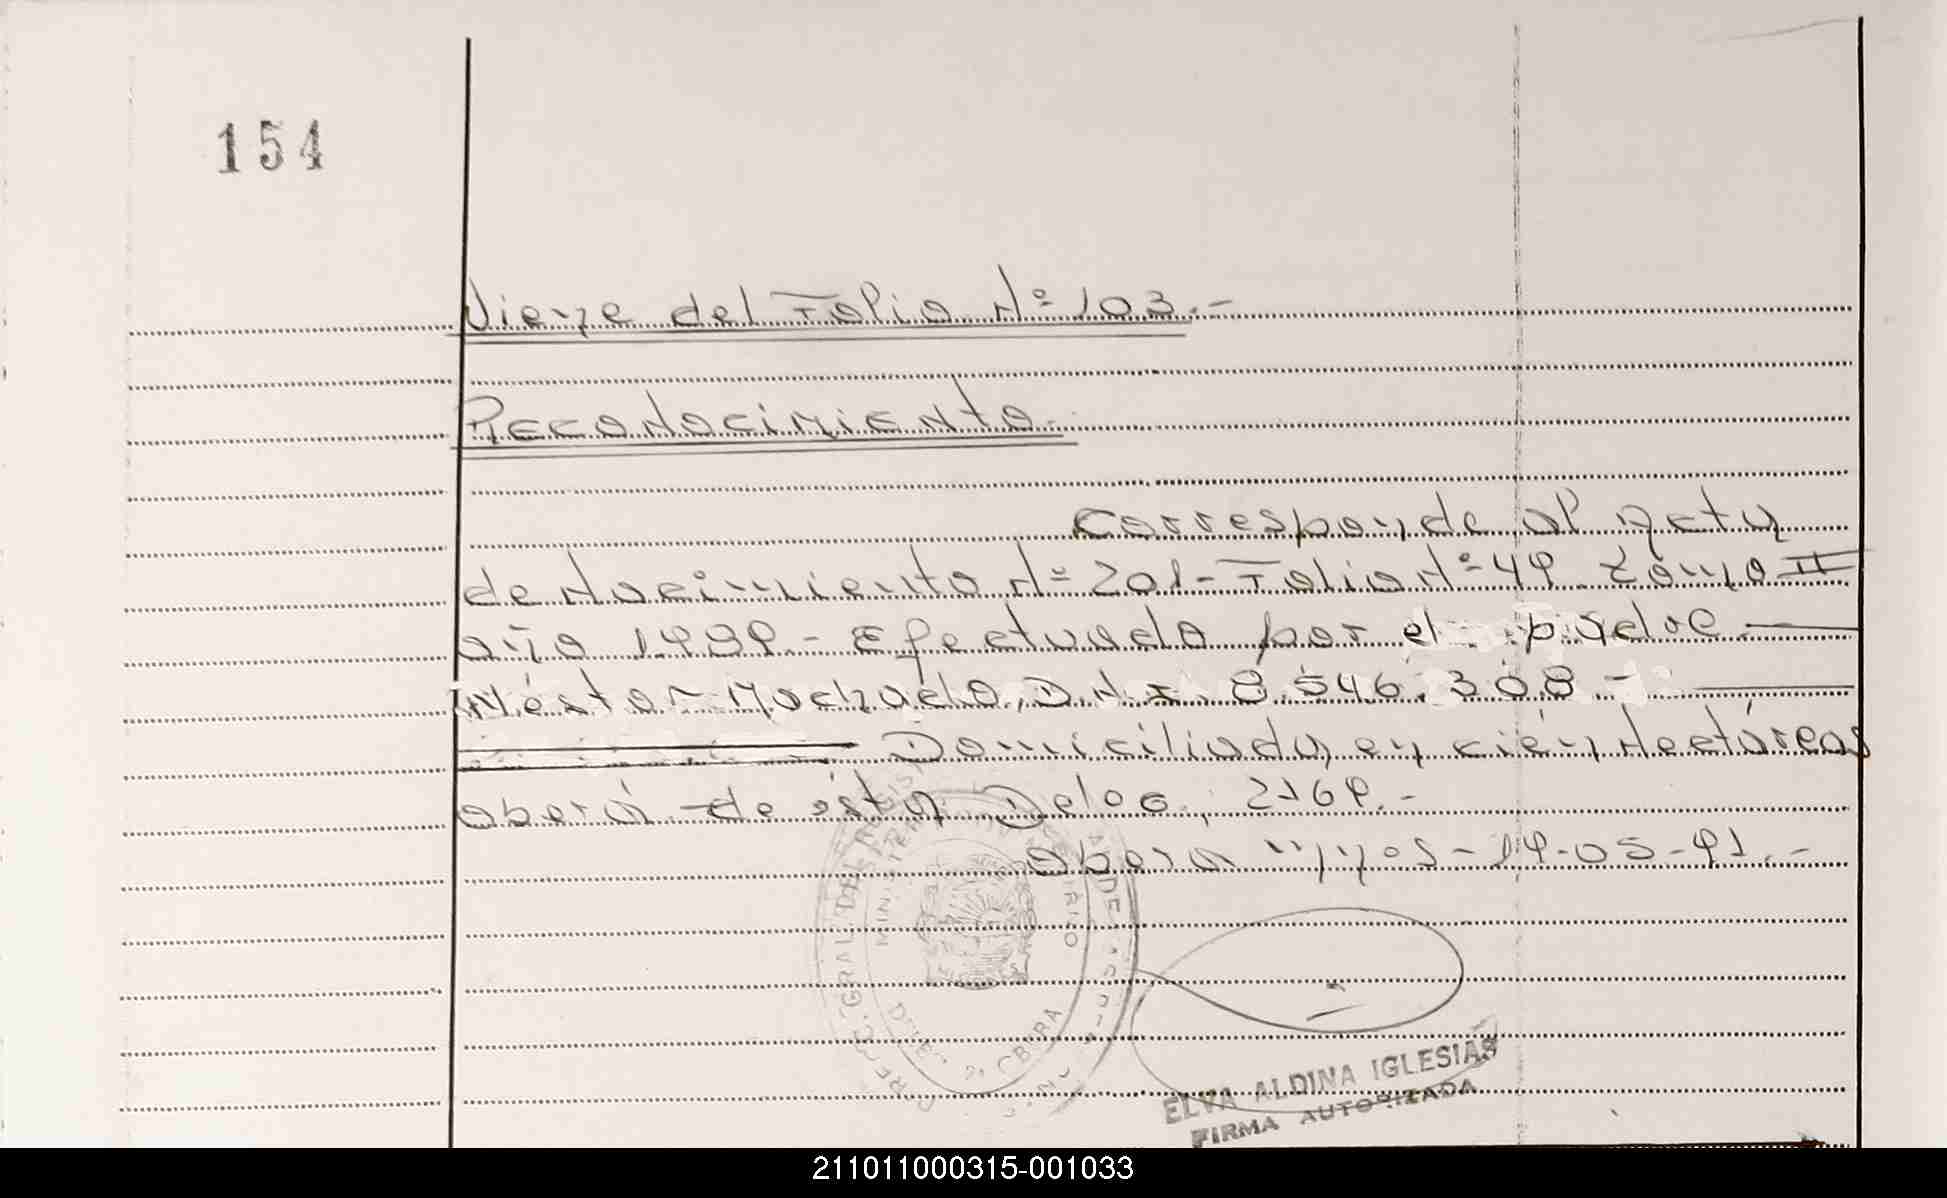 154
Viene del Folio Nº 103.-
Reconocimiento.-
Corresponde al Acta
de Nacimiento Nº 201- Folio Nº 49 Tomo II
año 1989.- Efectuado por el padre
Néstor Machado, D.N.I. 8.546.308-
Domiciliado en cién Hectáreas
oberá de ésta Deleg. 2169.-
oberá mnes-14-05-91.-
MINISTERIO
ELVA ALDINA IGLESIAS
FIRMA AUTORIZADA
211011000315-001033